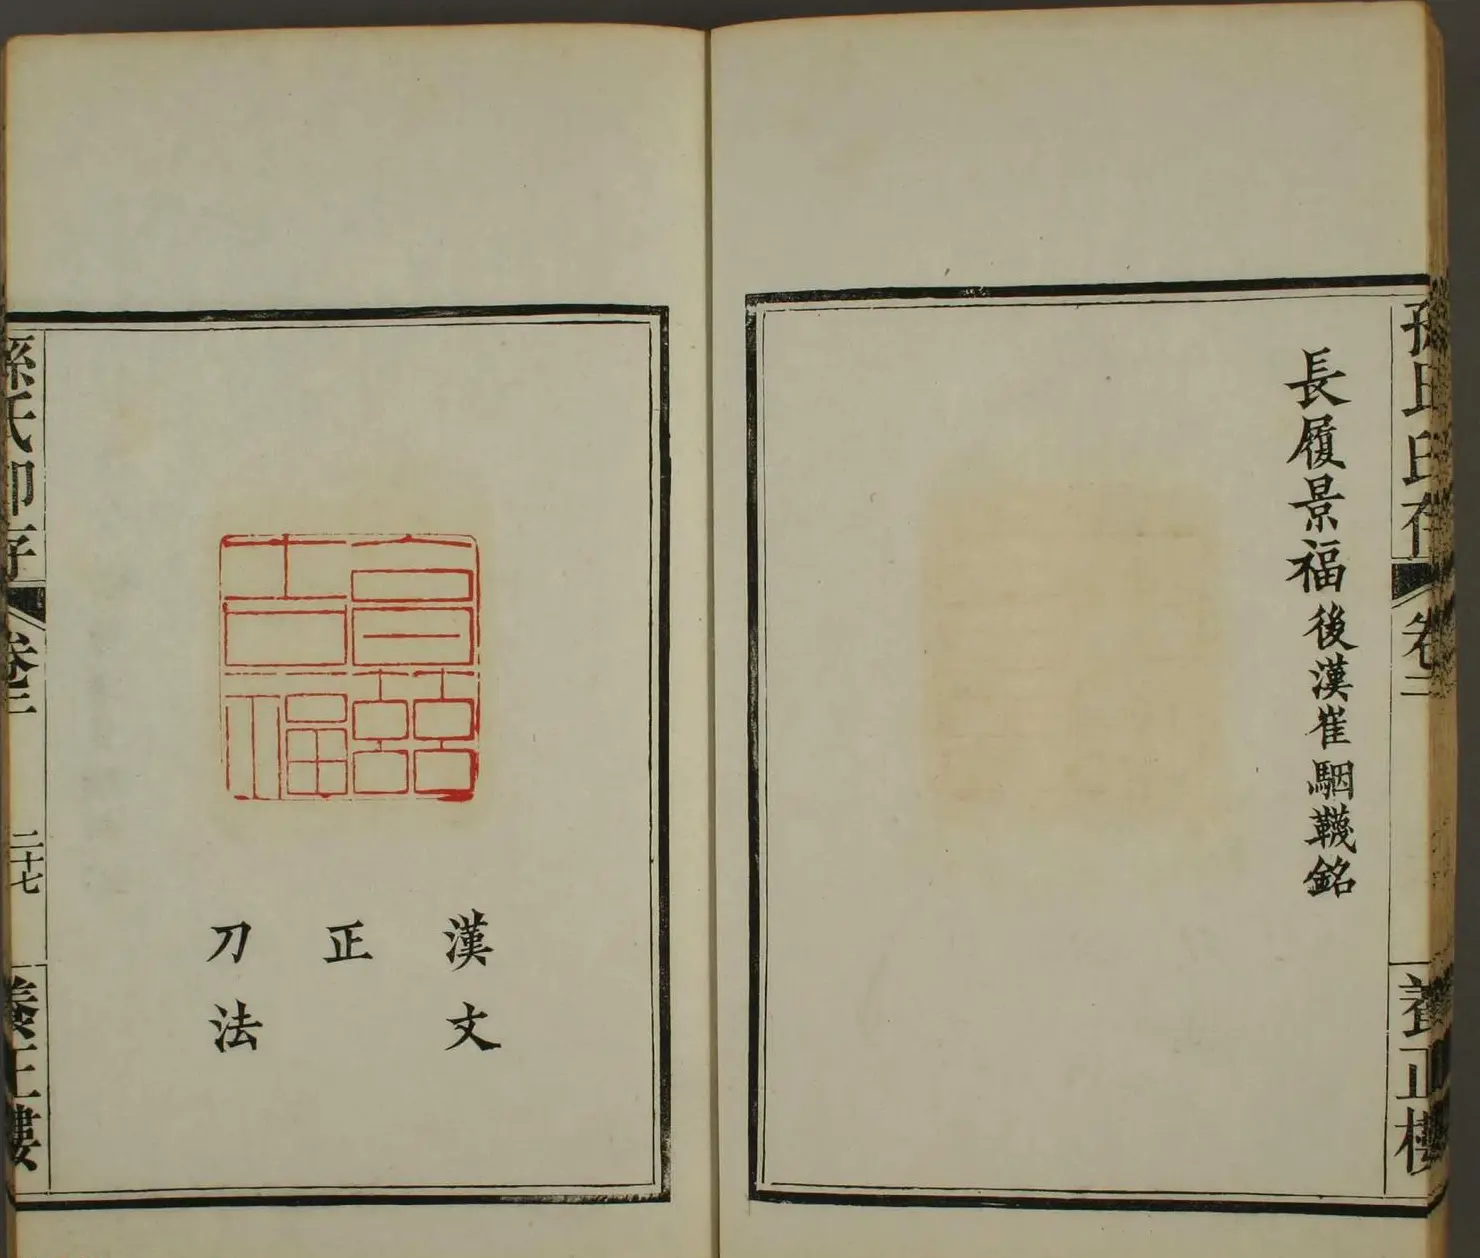 孫氏印存 卷二 養正樓
長履景福後漢崔駰韈銘
百
吉福
漢文
正
刀法
孫氏印存 卷二 二十七 養正樓